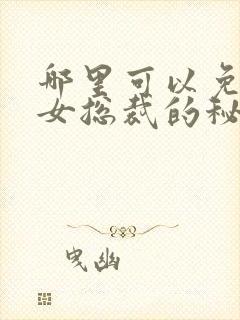 哪里可以免
女总裁的秘
曳幽